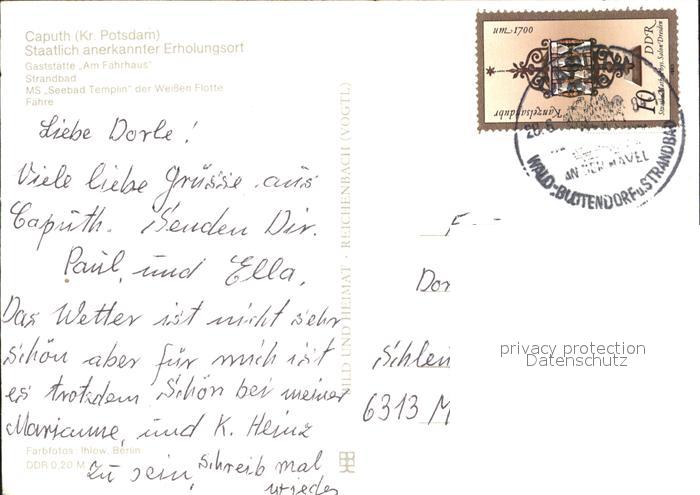 Caputh (Kr. Potsdam)
Staatlich anerkannter Erholungsort
Gaststätte „Am Fährhaus"
Strandbad
MS „Seebad Templin" der Weißen Flotte
Fähre
Liebe Dorle!
Viele liebe Grüsse aus
Caputh. Senden Dir.
Paul, und Ella,
Das Wetter ist nicht sehr
schön aber für mich ist
es trotzdem schön bei meiner
Marianne, und K. Heinz
zu sein, schreib mal
wieder
Farbfotos: Ihlow, Berlin
DDR 0,20 M
BILD UND HEIMAT · REICHENBACH (VOGTL)
um 1700
Kanzelsanduhr
DDR
10
Staatl. Math.-Phys. Salon Dresden
28.6
AN DER HAVEL
WALD-BLÜTENDORF u. STRANDBAD
F
Dor
Schlei
6313 M
privacy protection
Datenschutz